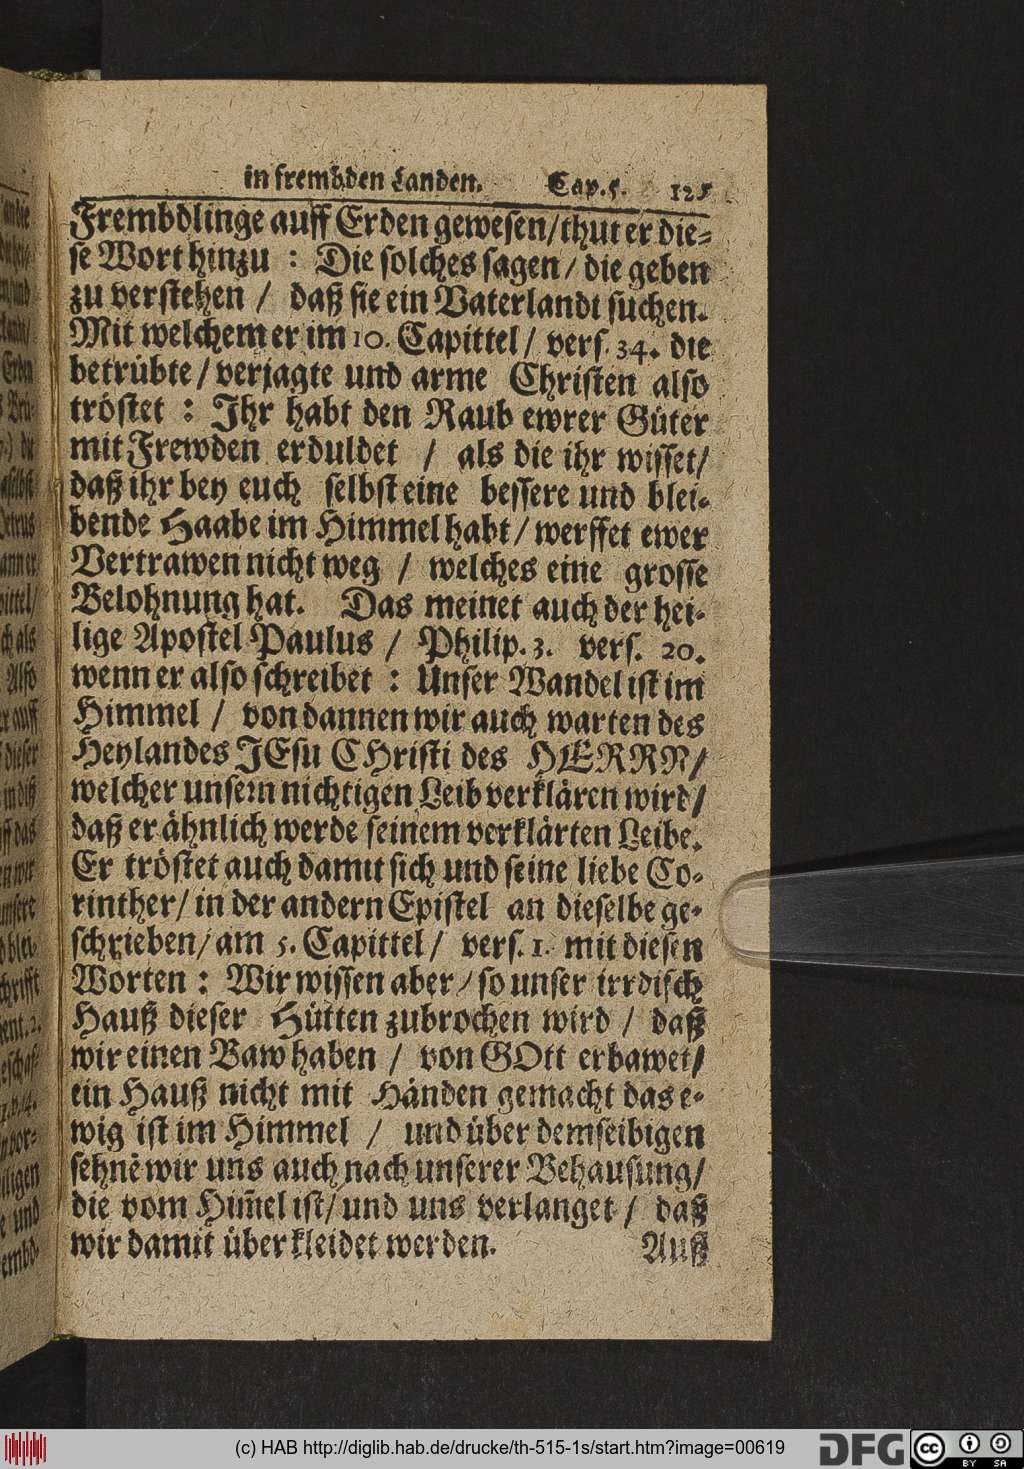 in frembden Landen. Cap. 5. 125
Frembdlinge auff Erden gewesen/ thut er die-
se Wort hinzu : Die solches sagen/ die geben
zu verstehen / daß sie ein Vaterlandt suchen.
Mit welchem er im 10. Capittel/ vers. 34. die
betrübte/ verjagte und arme Christen also
tröstet : Ihr habt den Raub ewrer Güter
mit Frewden erduldet / als die ihr wisset/
daß ihr bey euch selbst eine bessere und blei-
bende Haabe im Himmel habt/ werffet ewer
Vertrawen nicht weg / welches eine grosse
Belohnung hat. Das meinet auch der hei-
lige Apostel Paulus / Philip. 3. vers. 20.
wenn er also schreibet : Unser Wandel ist im
Himmel / von dannen wir auch warten des
Heylandes JEsu CHristi des HERRN/
welcher unsern nichtigen Leib verklären wird/
daß er ähnlich werde seinem verklärten Leibe.
Er tröstet auch damit sich und seine liebe Co-
rinther/ in der andern Epistel an dieselbe ge-
schrieben/ am 5. Capittel/ vers. 1. mit diesen
Worten : Wir wissen aber/ so unser irrdisch
Hauß dieser Hütten zubrochen wird / daß
wir einen Baw haben / von GOtt erbawet/
ein Hauß nicht mit Händen gemacht das e-
wig ist im Himmel / und über demselbigen
sehnē wir uns auch nach unserer Behausung/
die vom Him̄el ist/ und uns verlanget / daß
wir damit überkleidet werden.
Auff
(c) HAB http://diglib.hab.de/drucke/th-515-1s/start.htm?image=00619
DFG
cc BY SA